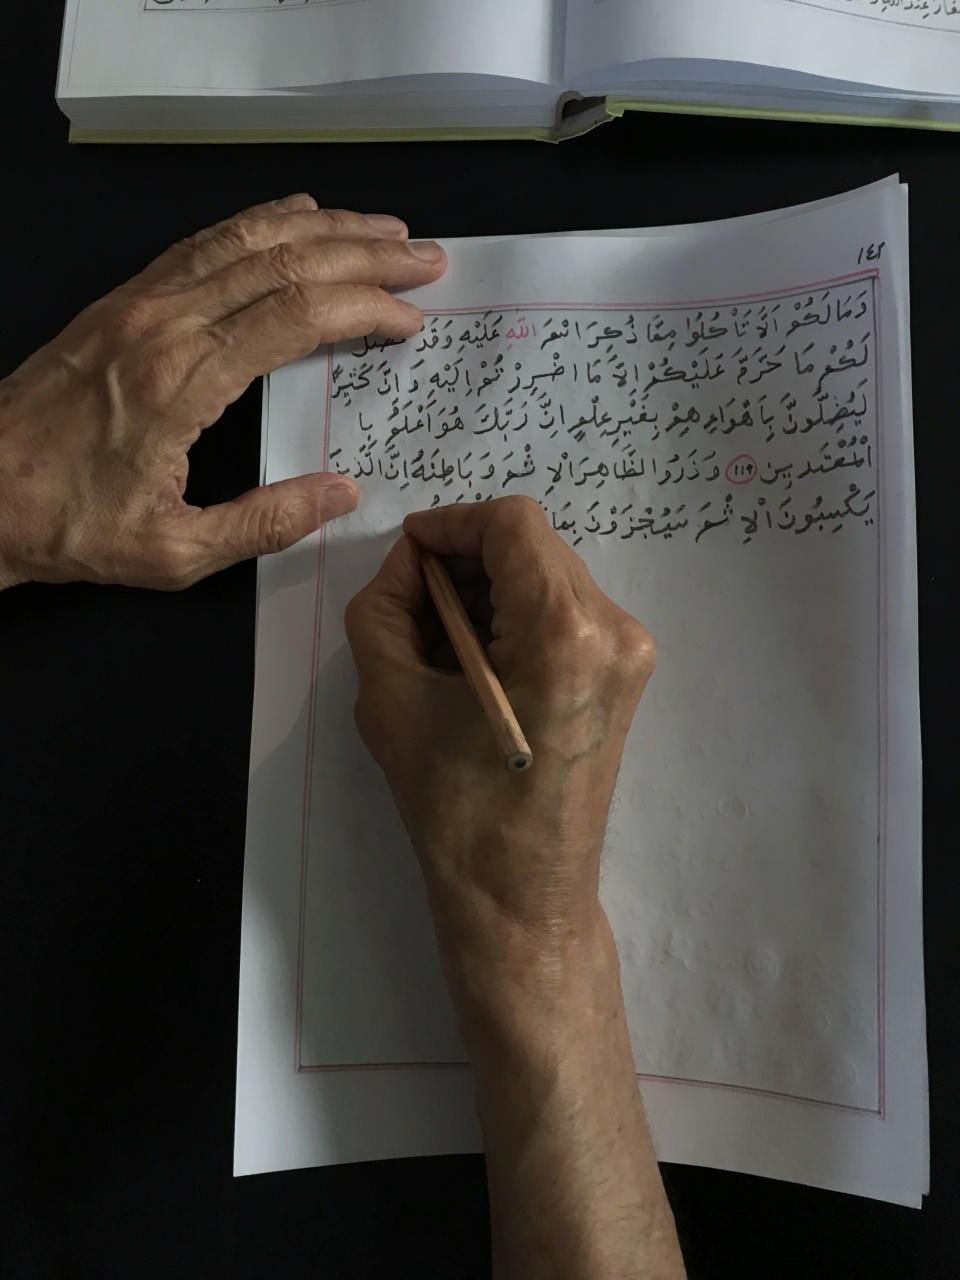 ١٤٢
وَمَا لَكُمْ اَلَّا تَاْكُلُوا مِمَّا ذُكِرَ اسْمُ اللّٰهِ عَلَيْهِ وَقَدْ فَصَّلَ
لَكُمْ مَا حَرَّمَ عَلَيْكُمْ اِلَّا مَا اضْطُرِرْتُمْ اِلَيْهِ وَاِنَّ كَثِيرًا
لَيُضِلُّونَ بِاَهْوَاءِهِمْ بِغَيْرِ عِلْمٍ اِنَّ رَبَّكَ هُوَ اَعْلَمُ بِا
الْمُعْتَدِينَ ١١٩ وَذَرُوا ظَاهِرَ الْاِثْمِ وَبَاطِنَهُ اِنَّ الَّذِينَ
يَكْسِبُونَ الْاِثْمَ سَيُجْزَوْنَ بِمَا